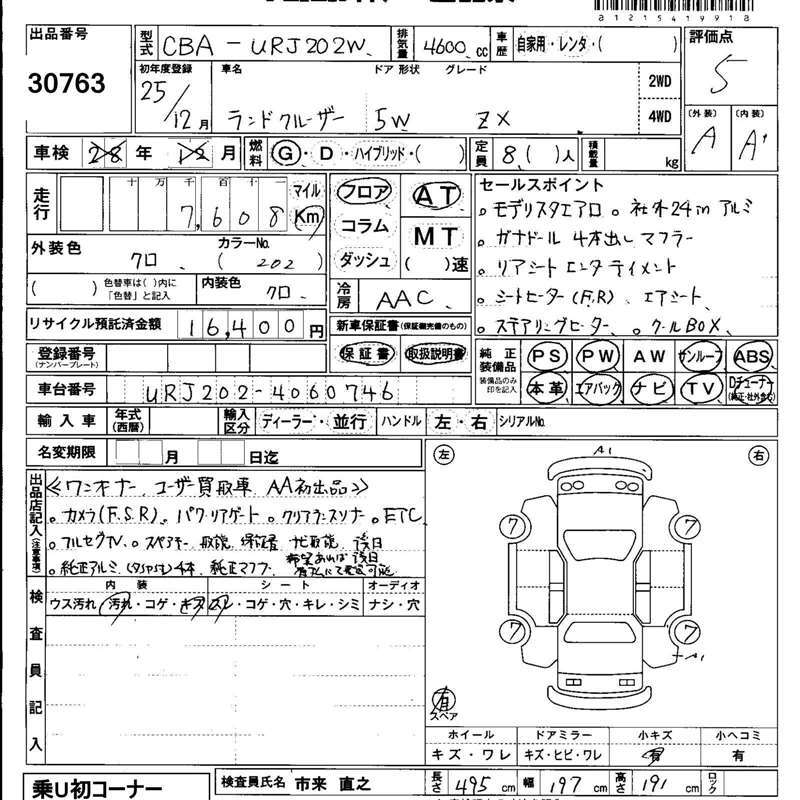 81215419918
出品番号
30763
型式 CBA-URJ202W 排気量 4600 cc 車歴 自家用・レンタ・( )
評価点
5
初年度登録 車名 ドア 形状 グレード
25/12月 ランドクルーザー 5W ZX
2WD
4WD
(外装) (内装)
A A'
車検 28年 12月 燃料 G・D・ハイブリッド・( ) 定員 8( )人 積載量 kg
走行 十 万 千 百 十 一 マイル
7,608 Km
フロア
コラム
ダッシュ
AT
MT
( )速
セールスポイント
。モデリスタエアロ 。社外24inアルミ
。ガナドール 4本出しマフラー
。リアシートエンターテイメント
。シートヒーター(F,R)、エアシート、
。ステアリングヒーター、。クールBOX、
外装色 カラーNo.
クロ (202)
( ) 色替車は( )内に「色替」と記入
内装色 クロ.
冷房 AAC.
リサイクル預託済金額 16,400円
新車保証書(保証継続完備のもの)
保証書 取扱説明書
純正装備品 PS PW AW サンルーフ ABS
装備品のみ印を記入 本革 エアバック ナビ TV Dチューナー(純正・社外含む)
登録番号
(ナンバープレート)
車台番号 URJ202-4060746
輸入車 年式(西暦) 輸入区分 ディーラー・並行 ハンドル 左・右 シリアルNo.
名変期限 月 日迄
出品店記入(注意事項)
≪ワンオーナー、ユーザー買取車 AA初出品≫
。カメラ(F,S,R) 。パワーリアゲート 。クリアランスソナー 。ETC
。フルセグTV 。スペアキー 取説 保証書 ナビ取説 後日
。純正アルミ(タイヤ付)4本、純正マフラー
左 右
A1
7 7
7 7
A1
有
スペア
検査員記入
内装 シート オーディオ
ウス汚れ・汚れ・コゲ・キズ スレ・コゲ・穴・キレ・シミ ナシ・穴
ホイール ドアミラー 小キズ 小ヘコミ
キズ・ワレ キズ・ヒビ・ワレ 有 有
乗U初コーナー
検査員氏名 市来 直之
長さ 495cm 幅 197cm 高さ 191cm ロック